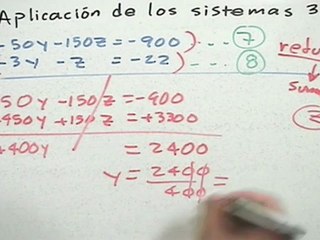 Aplicación de los sistemas 3
-50y-150z=-900)...⑦
-3y -z = -22)...⑧
50y -150z=-900
+450y +150z=+3300
+400y = 2400
y = 2400/400 =